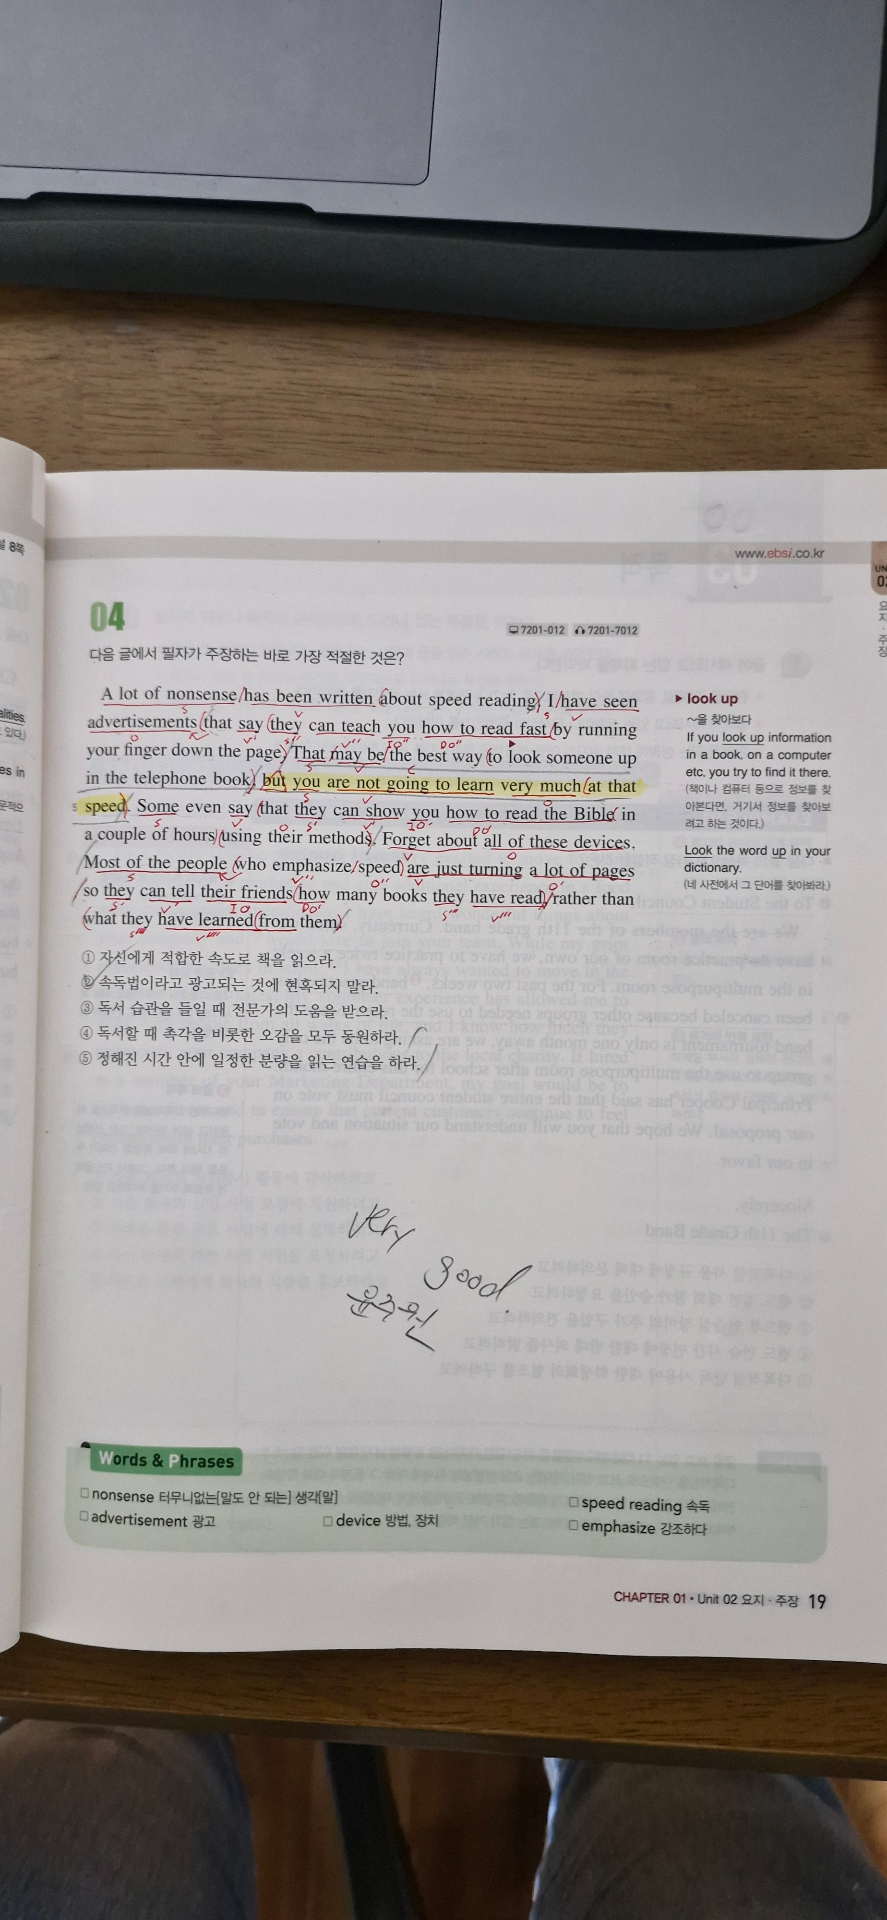 www.ebsi.co.kr
04
7201-012 7201-7012
다음 글에서 필자가 주장하는 바로 가장 적절한 것은?
A lot of nonsense has been written about speed reading. I have seen
advertisements that say they can teach you how to read fast by running
your finger down the page. That may be the best way to look someone up
in the telephone book, but you are not going to learn very much at that
speed. Some even say that they can show you how to read the Bible in
a couple of hours using their methods. Forget about all of these devices.
Most of the people who emphasize speed are just turning a lot of pages
so they can tell their friends how many books they have read, rather than
what they have learned from them.
① 자신에게 적합한 속도로 책을 읽으라.
② 속독법이라고 광고되는 것에 현혹되지 말라.
③ 독서 습관을 들일 때 전문가의 도움을 받으라.
④ 독서할 때 촉각을 비롯한 오감을 모두 동원하라.
⑤ 정해진 시간 안에 일정한 분량을 읽는 연습을 하라.
▶ look up
~을 찾아보다
If you look up information
in a book, on a computer
etc, you try to find it there.
(책이나 컴퓨터 등으로 정보를 찾
아본다면, 거기서 정보를 찾아보
려고 하는 것이다.)
Look the word up in your
dictionary.
(네 사전에서 그 단어를 찾아봐라.)
very
good.
윤주원
Words & Phrases
□ nonsense 터무니없는[말도 안 되는] 생각[말]
□ speed reading 속독
□ advertisement 광고
□ device 방법, 장치
□ emphasize 강조하다
CHAPTER 01 • Unit 02 요지 · 주장 19